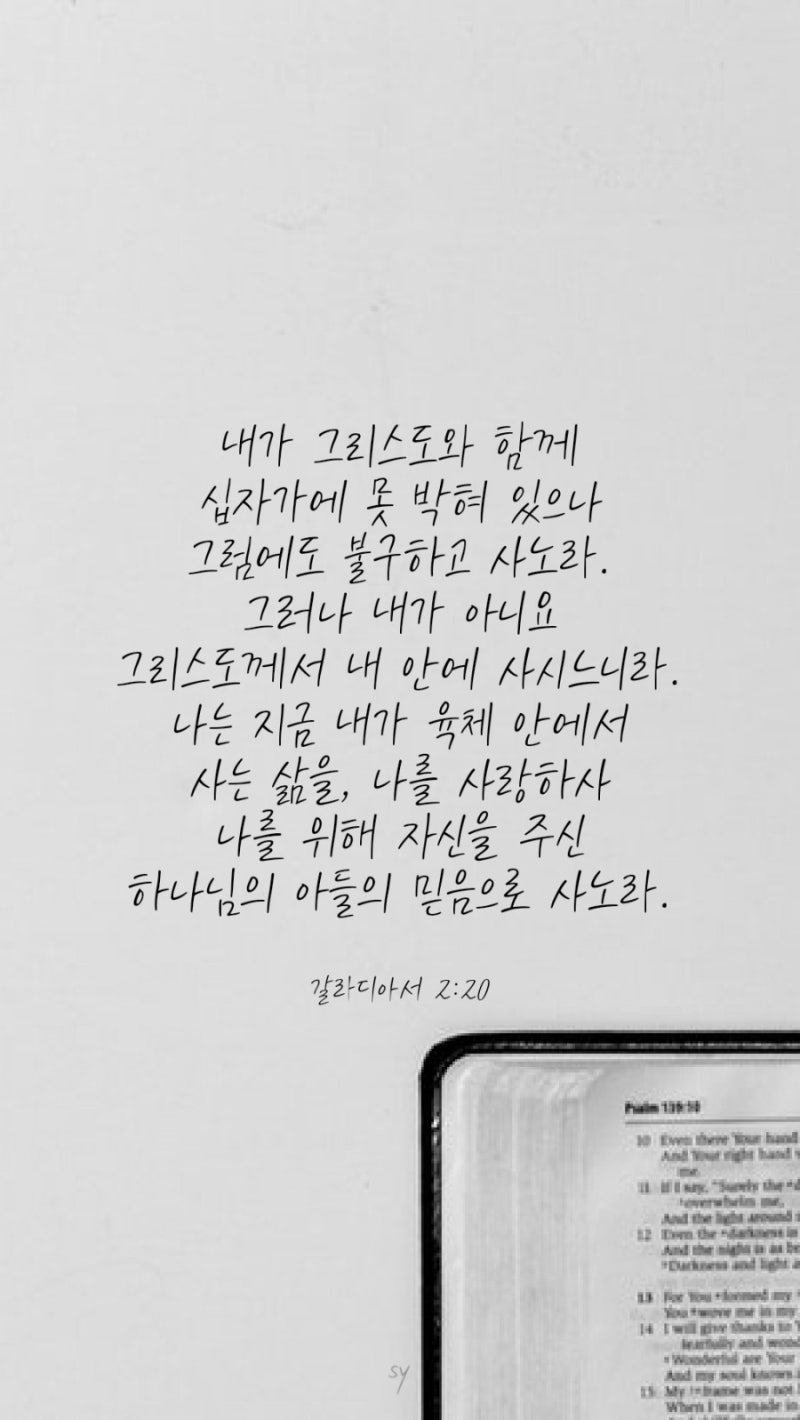 내가 그리스도와 함께
십자가에 못 박혀 있으나
그럼에도 불구하고 사노라.
그러나 내가 아니요
그리스도께서 내 안에 사시느니라.
나는 지금 내가 육체 안에서
사는 삶을, 나를 사랑하사
나를 위해 자신을 주신
하나님의 아들의 믿음으로 사노라.
갈라디아서 2:20
Psalm 139:10
10 Even there Your hand
And Your right hand
me.
11 If I say, "Surely the
overwhelm me,
And the light around
12 Even the darkness is
And the night is as
Darkness and light
13 For You formed my
You wove me in my
14 I will give thanks to
fearfully and
Wonderful are Your
And my soul knows
15 My frame was not
When I was made in
sy